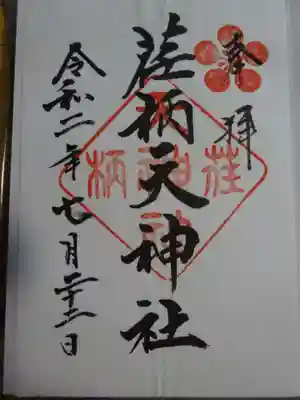 奉拝
荏柄天神社
令和二年七月二十二日